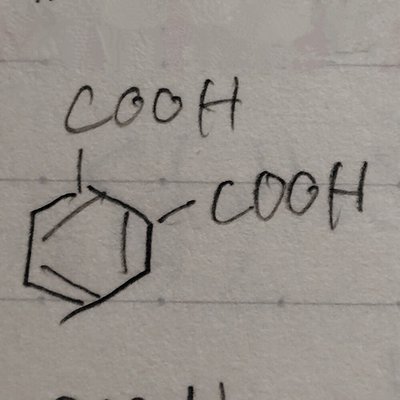 COOH
COOH